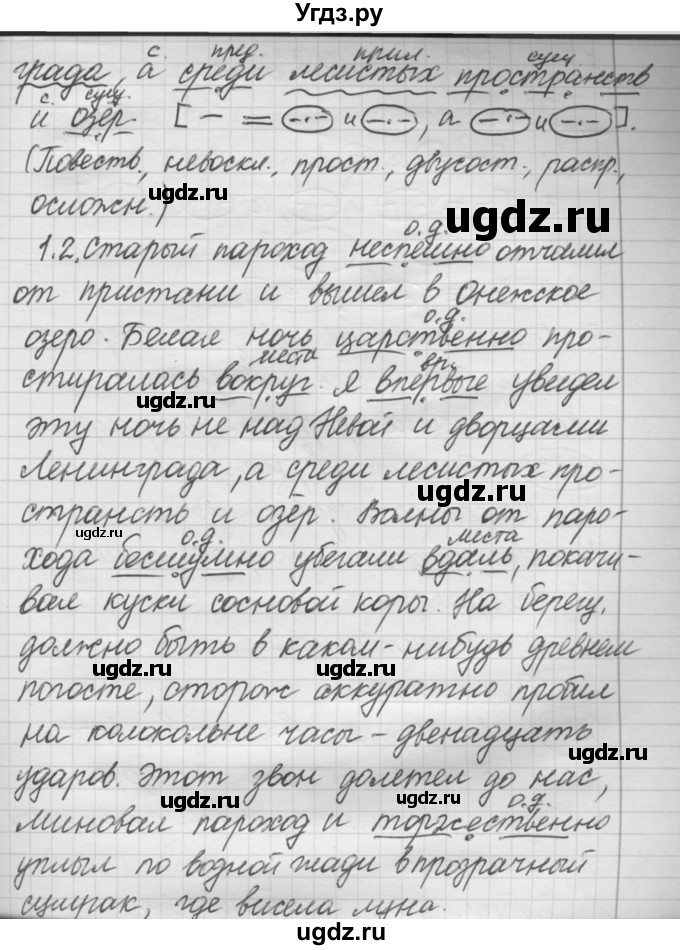 Угдз.ру
с. пред. прил. сущ.
града, а среди лесистых пространств
с. сущ.
и озёр [— = и , а и ].
(Повеств., невоскл., прост., двусост., распр.,
ugdz.ru
осложн.)
ugdz.ru
о.д.
1.2. Старый пароход неспешно отчалил
от пристани и вышел в Онежское
о.д.
озеро. Белая ночь царственно про-
места вр.
стиралась вокруг. Я впервые увидел
ugdz.ru ugdz.ru
эту ночь не над Невой и дворцами
Ленинграда, а среди лесистых про-
ugdz.ru
странств и озёр. Волны от паро-
ugdz.ru
о.д. места
хода бесшумно убегали вдаль, покачи-
вая куски сосновой коры. На берегу,
должно быть в каком-нибудь древнем
ugdz.ru ugdz.ru
погосте, сторож аккуратно пробил
на колокольне часы – двенадцать
ugdz.ru
ударов. Этот звон долетел до нас,
ugdz.ru
о.д.
миновал пароход и торжественно
уплыл по водной глади в прозрачный
ugdz.ru
сумрак, где висела луна.
ugdz.ru